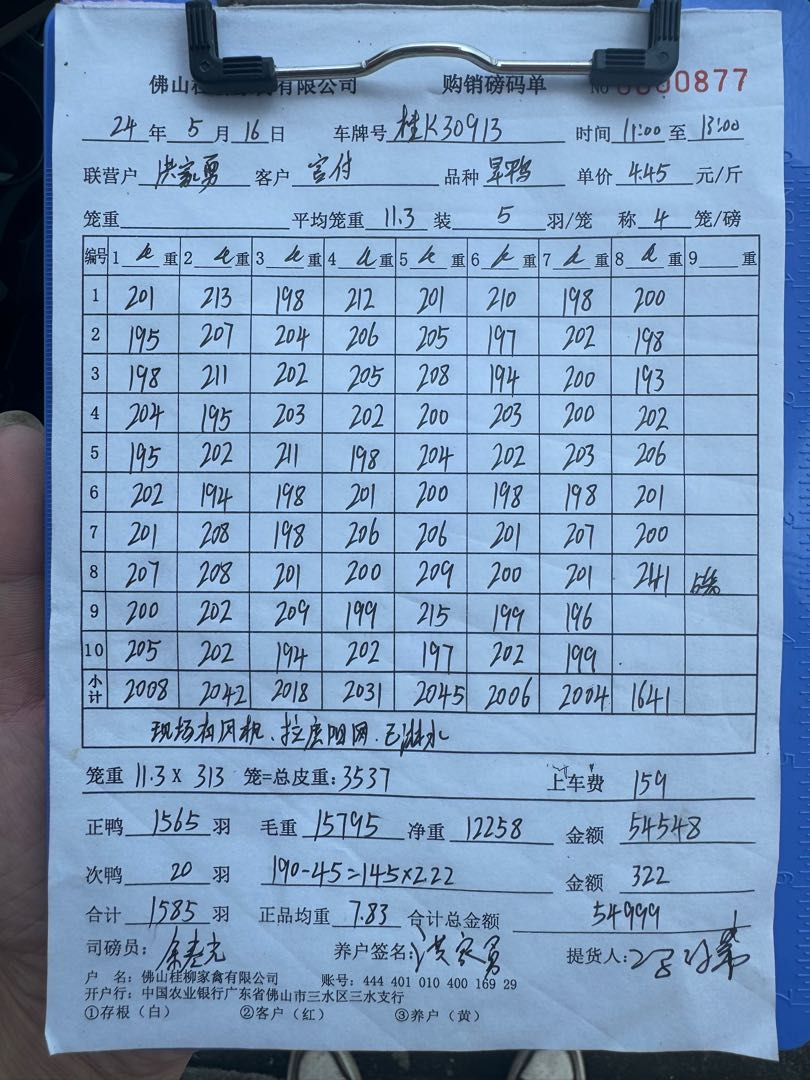 佛山桂 有限公司 购销磅码单 No 0000877
24 年 5 月 16 日 车牌号 桂K30913 时间 11:00 至 13:00
联营户 洪家勇 客户 宫付 品种 旱鸭 单价 4.45 元/斤
笼重 平均笼重 11.3 装 5 羽/笼 称 4 笼/磅
编号 1 重 2 重 3 重 4 重 5 重 6 重 7 重 8 重 9 重
1 201 213 198 212 201 210 198 200
2 195 207 204 206 205 197 202 198
3 198 211 202 205 208 194 200 193
4 204 195 203 202 200 203 200 202
5 195 202 211 198 204 202 203 206
6 202 194 198 201 200 198 198 201
7 201 208 198 206 206 201 207 200
8 207 208 201 200 209 200 201 241
9 200 202 209 199 215 199 196
10 205 202 194 202 197 202 199
小计 2008 2042 2018 2031 2045 2006 2004 1641
现场有风机、拉遮阳网、已淋水
笼重 11.3 X 313 笼=总皮重:3537 上车费 159
正鸭 1565 羽 毛重 15795 净重 12258 金额 54548
次鸭 20 羽 190-45=145×2.22 金额 322
合计 1585 羽 正品均重 7.83 合计总金额 54999
司磅员: 养户签名: 洪家勇 提货人:
户 名: 佛山桂柳家禽有限公司 账号: 444 401 010 400 169 29
开户行: 中国农业银行广东省佛山市三水区三水支行
①存根(白) ②客户(红) ③养户(黄)